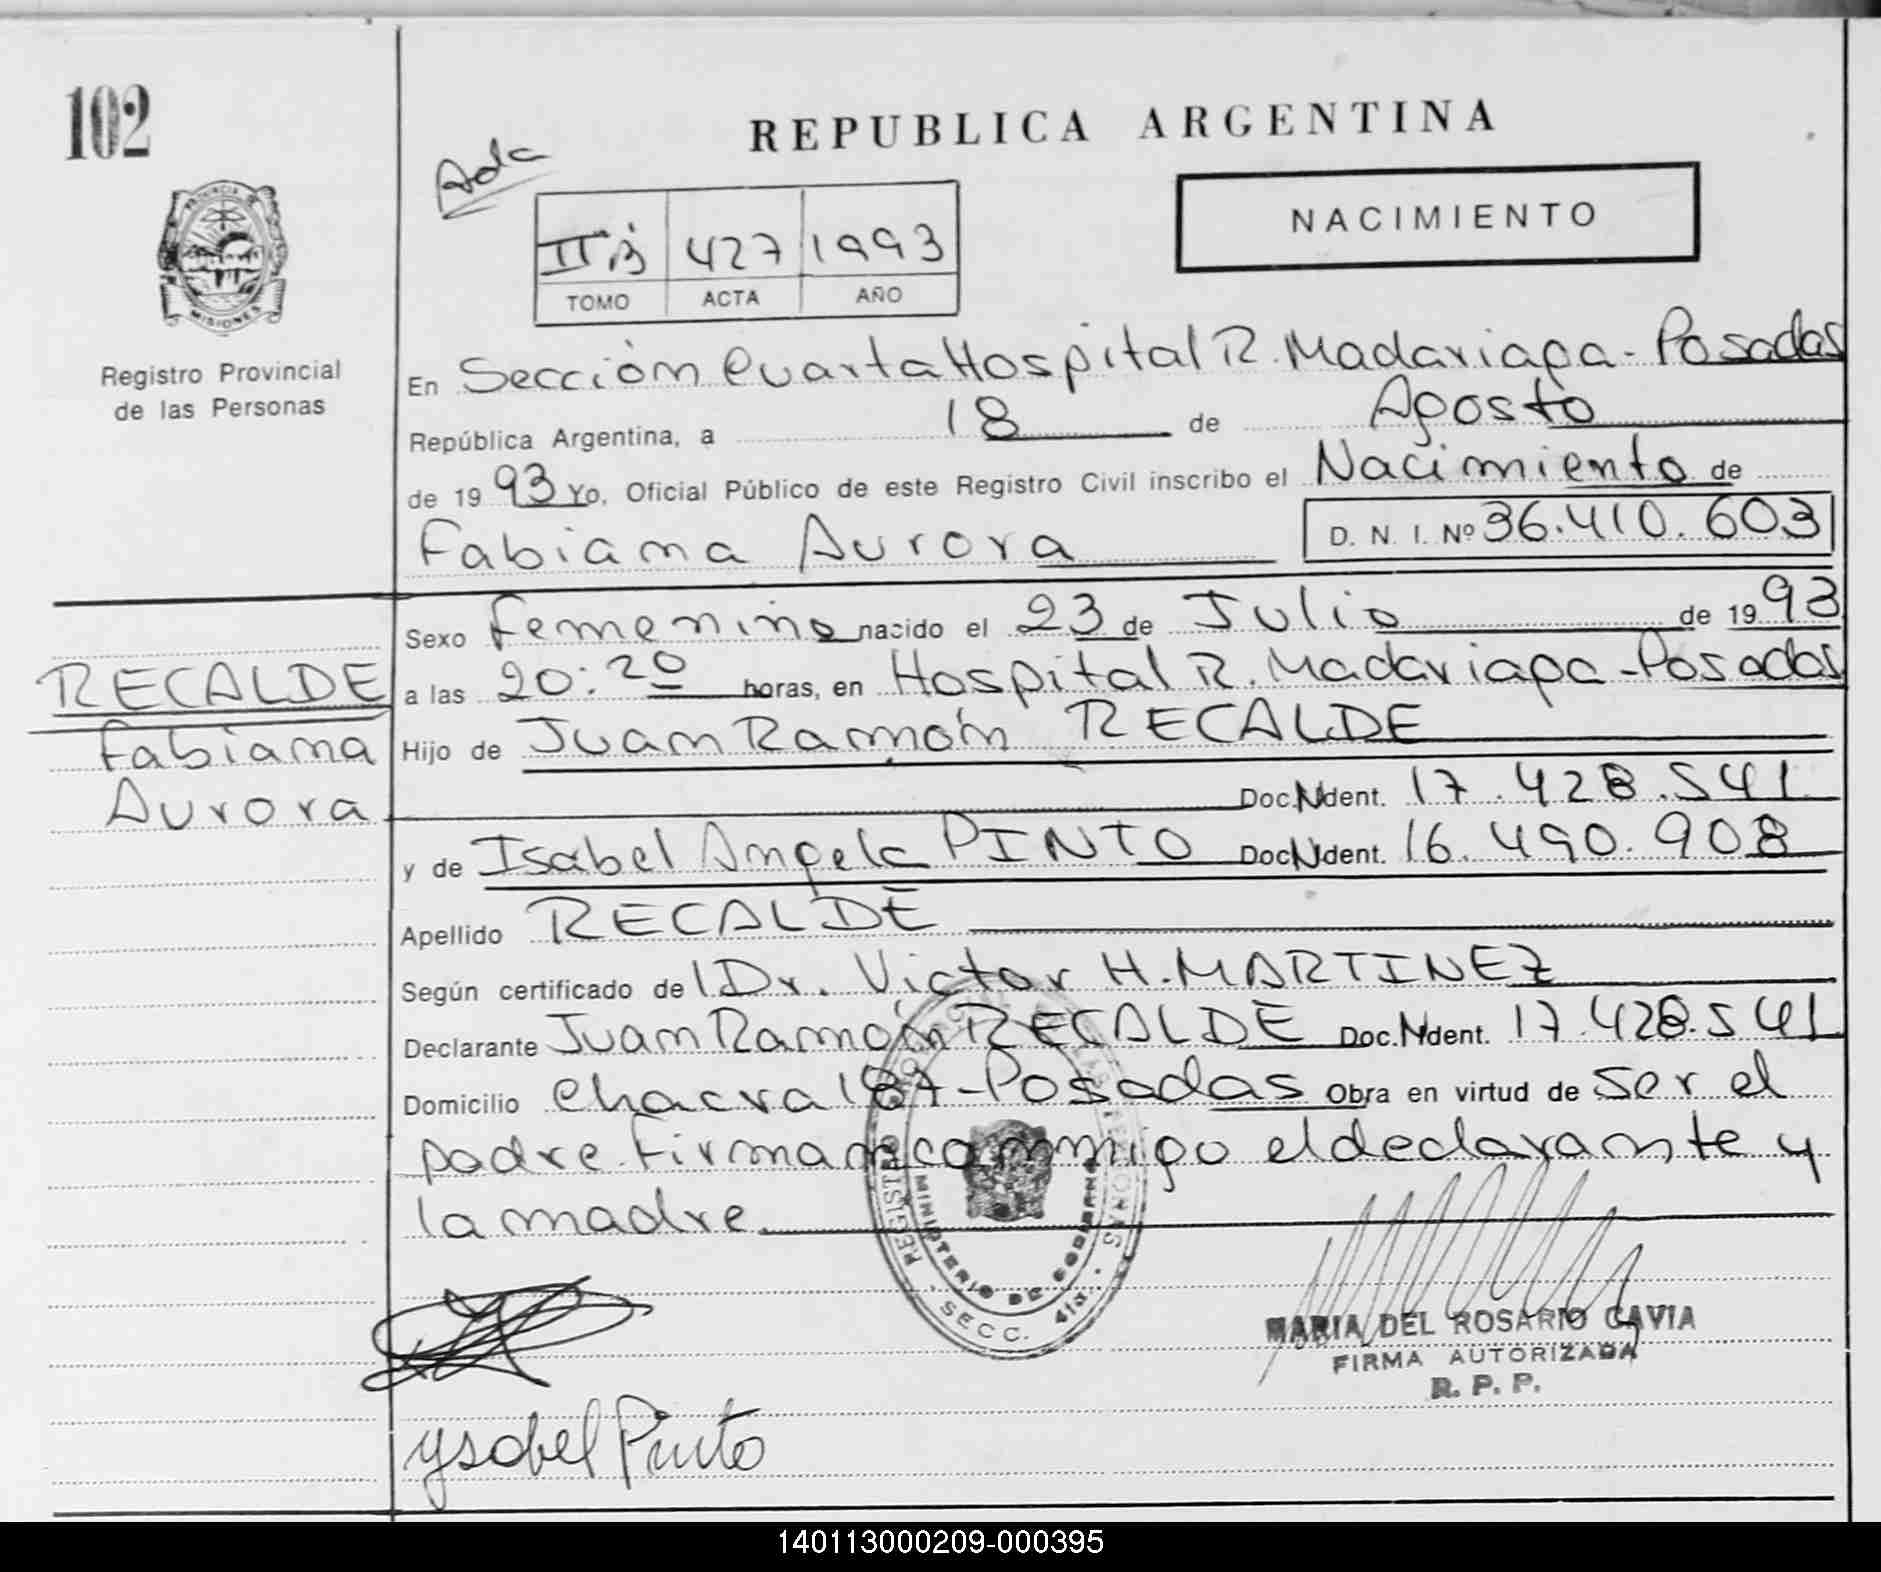 102
REPUBLICA ARGENTINA
Ada
NACIMIENTO
II B 427 1993
TOMO ACTA AÑO
PROVINCIA DE MISIONES
Registro Provincial
de las Personas
En Sección Cuarta Hospital R. Madariaga - Posadas
República Argentina, a 18 de Agosto
de 1993 Yo, Oficial Público de este Registro Civil inscribo el Nacimiento de
Fabiana Aurora D. N. I. Nº 36.410.603
Sexo femenino nacido el 23 de Julio de 1993
RECALDE
Fabiana
Aurora
a las 20:20 horas, en Hospital R. Madariaga - Posadas
Hijo de Juan Ramón RECALDE
Doc. N. Ident. 17.428.541
y de Isabel Angela PINTO Doc N Ident. 16.490.908
Apellido RECALDE
Según certificado del Dr. Victor H. MARTINEZ
Declarante Juan Ramón RECALDE Doc. N Ident. 17.428.541
Domicilio Chacra 187 - Posadas Obra en virtud de ser el
padre. Firman conmigo el declarante y
la madre
REGISTRO PERSONAS
MINISTERIO DE GOBIERNO
SECC. 4ta.
MARIA DEL ROSARIO GAVIA
FIRMA AUTORIZADA
R. P. P.
Ysabel Pinto
140113000209-000395